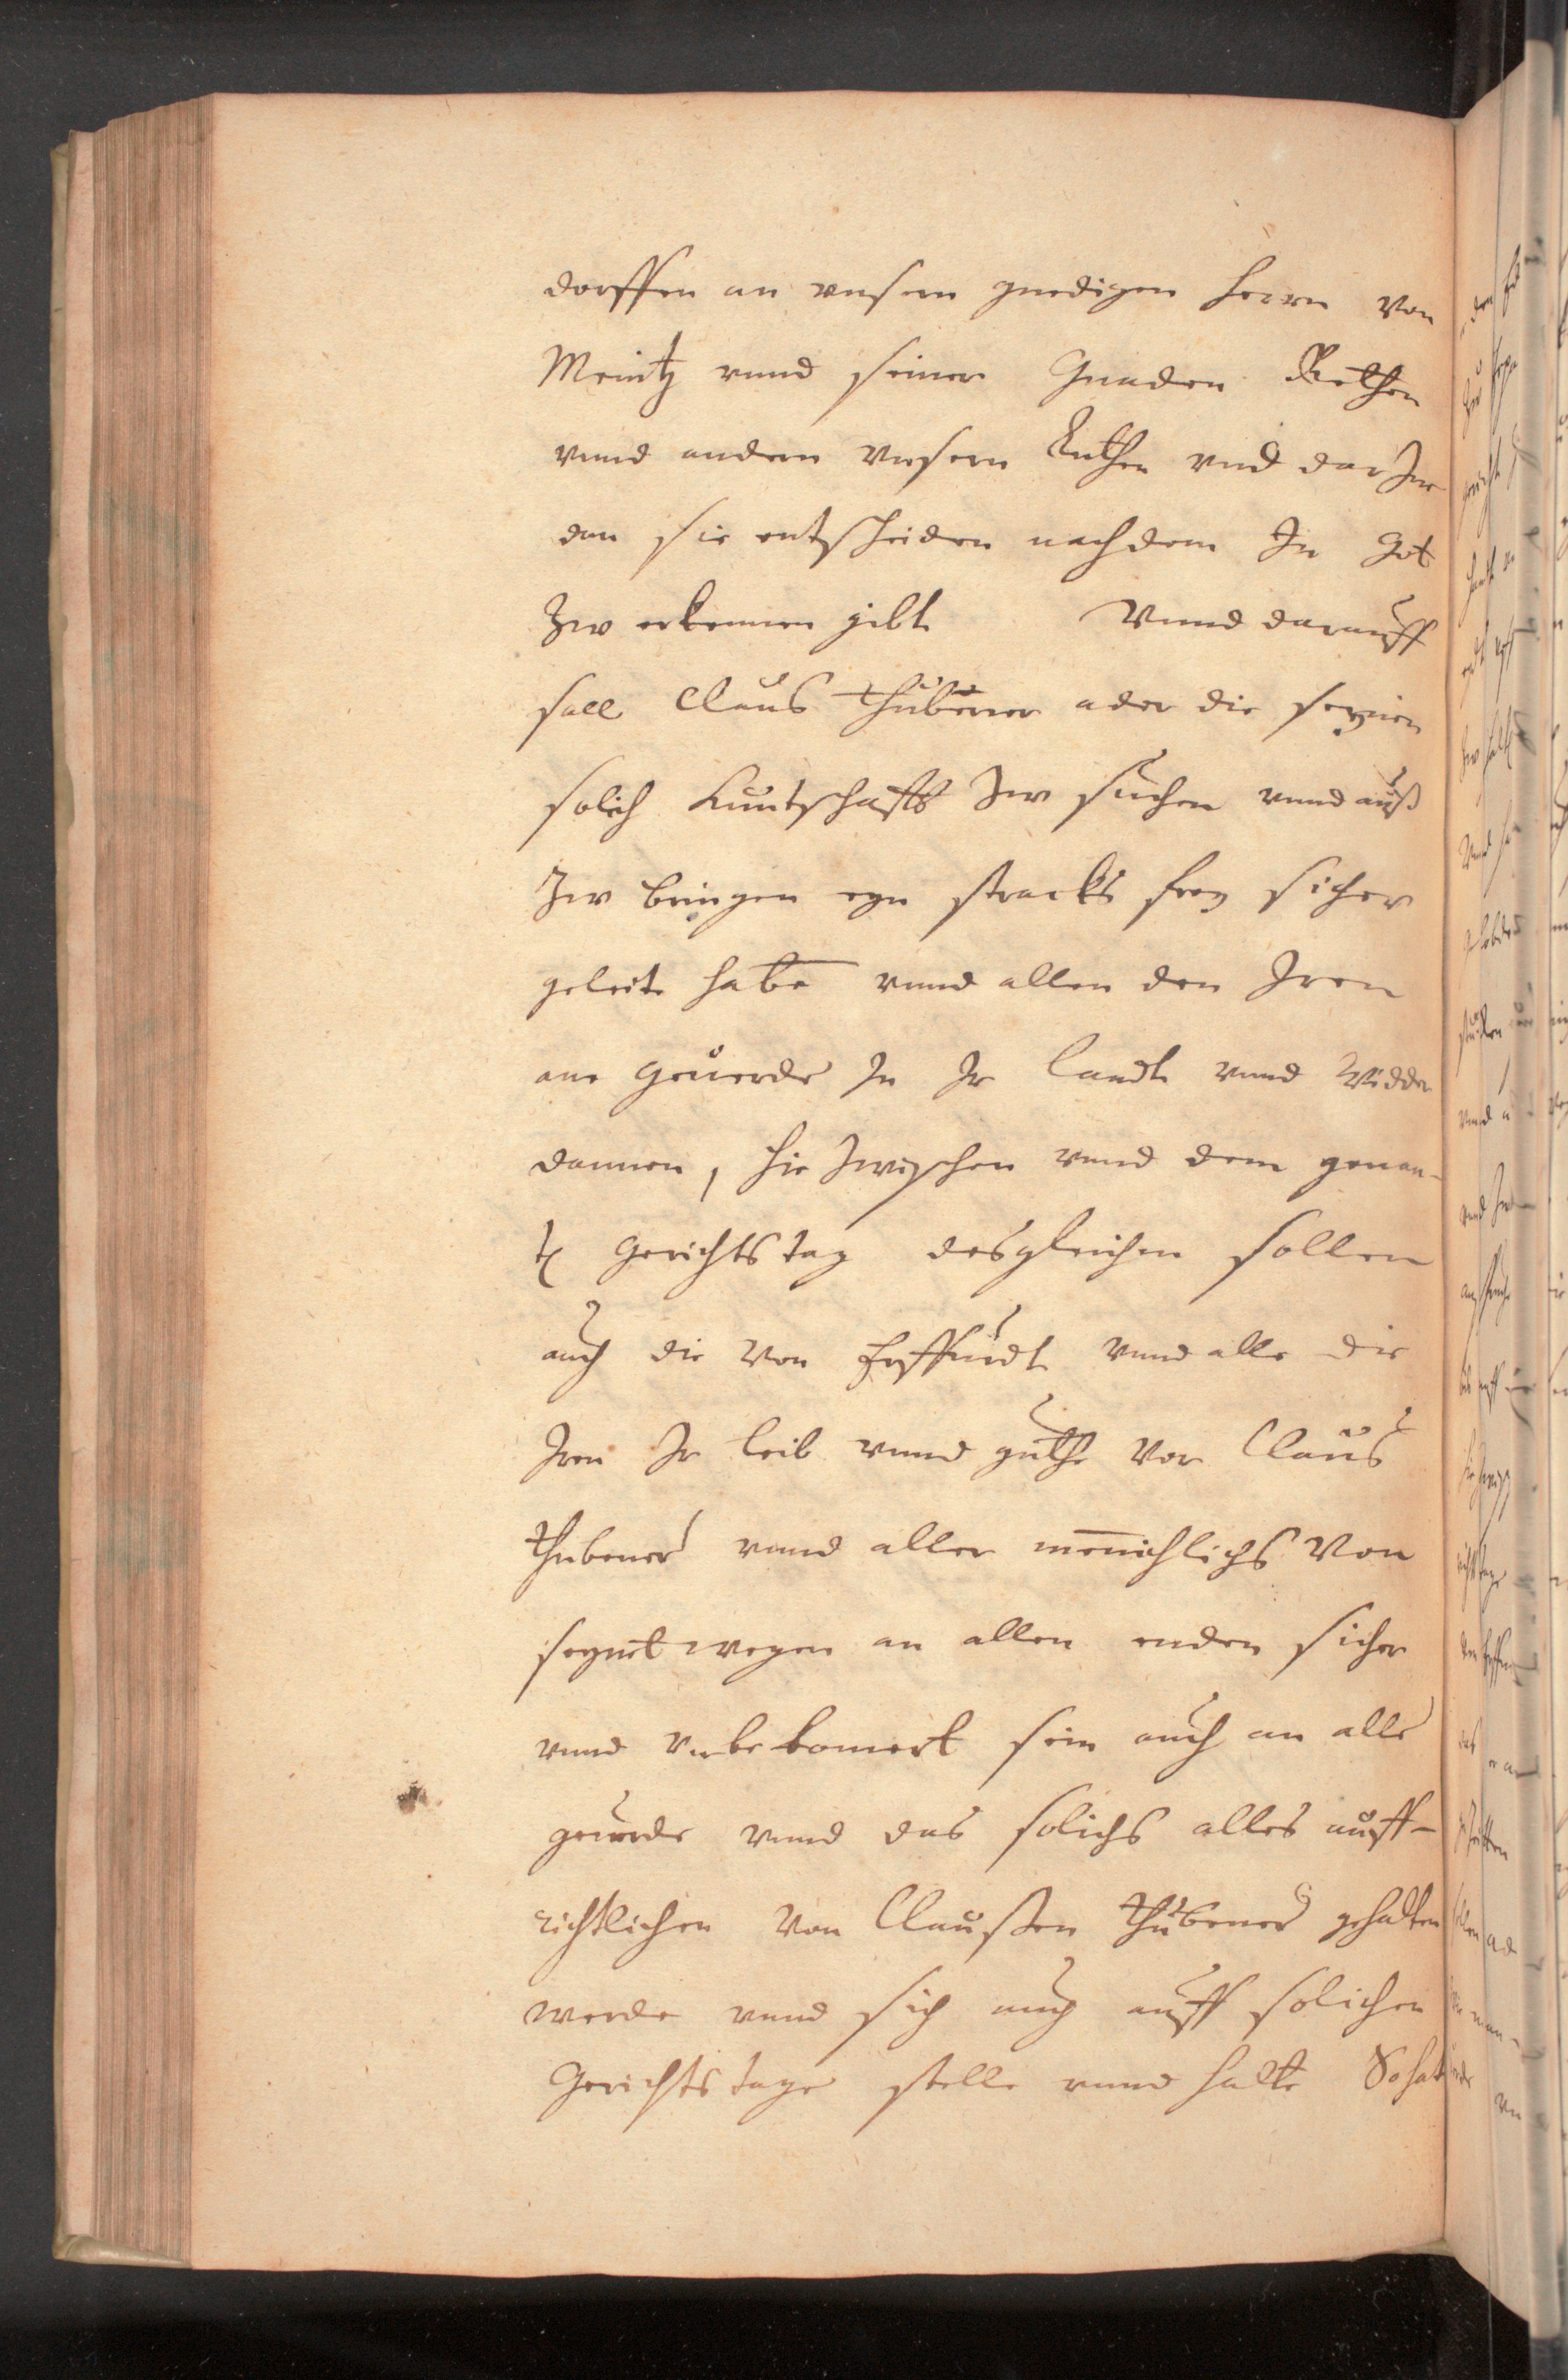 dorffen an vnsern gnedigen Herrn von
Meintz vnnd seiner Gnaden Rethen
vnnd andern vnsern Luthen vnd dar Jne
dan sie entscheiden nachdem In Got
Zw erkennen gibt Vnnd darauff
sall Claus Thubener ader die seynen
solich Kuntschafft Zw suchen vnnd auß
Zw bringen eyn stracks frey sicher
geleite habe vnnd allen den Jren
ane geuerde Jn Jr Landt vnnd widder
dannen, hie Zwischen vnnd dem genan-
ten Gerichtstag desgleichen sollen
auch die von Erffurdt vnnd alle die
Jren Jr leib vnnd guthe vor Claus
Thubener vnnd aller menichlichs von
seynet wegen an allen enden sicher
vnnd vnbekomert sein auch an alle
geuerde vnnd das solichs alles auff-
richtlichen von Claußen Thubener gehalten
werde vnnd sich auch auff solichen
Gerichtstage stelle vnnd halte So hat